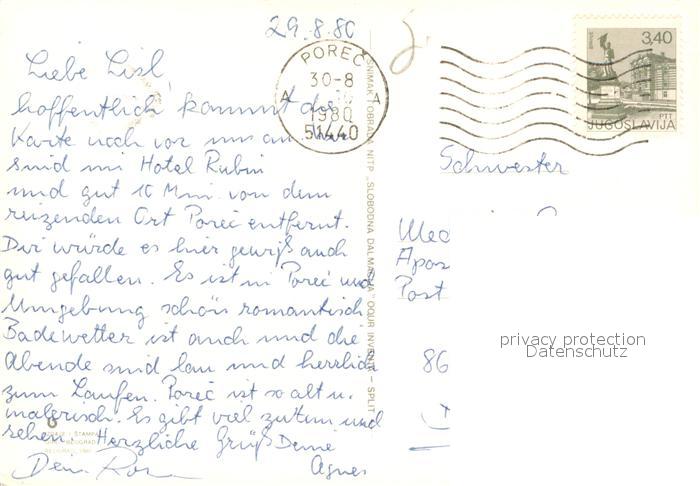 29.8.80
Liebe Lisl,
hoffentlich kommt die
Karte noch vor uns an. Wir
sind im Hotel Rubin
und gut 10 Min. von dem
reizenden Ort Poreč entfernt.
Dir würde es hier gewiß auch
gut gefallen. Es ist in Poreč und
Umgebung schön romantisch
Badewetter ist auch und die
Abende sind lau und herrlich
zum Laufen. Poreč ist so alt u.
malerisch. Es gibt viel zu tun und
sehen. Herzliche Grüß Deine
Agnes
POREČ
30-8
1980
51440
A A
SNIMAK I OBRADA NITP „SLOBODNA DALMACIJA" OOUR
SPLIT
3,40
PTT
JUGOSLAVIJA
Schwester
Med
Apos
Post
86
privacy protection
Datenschutz